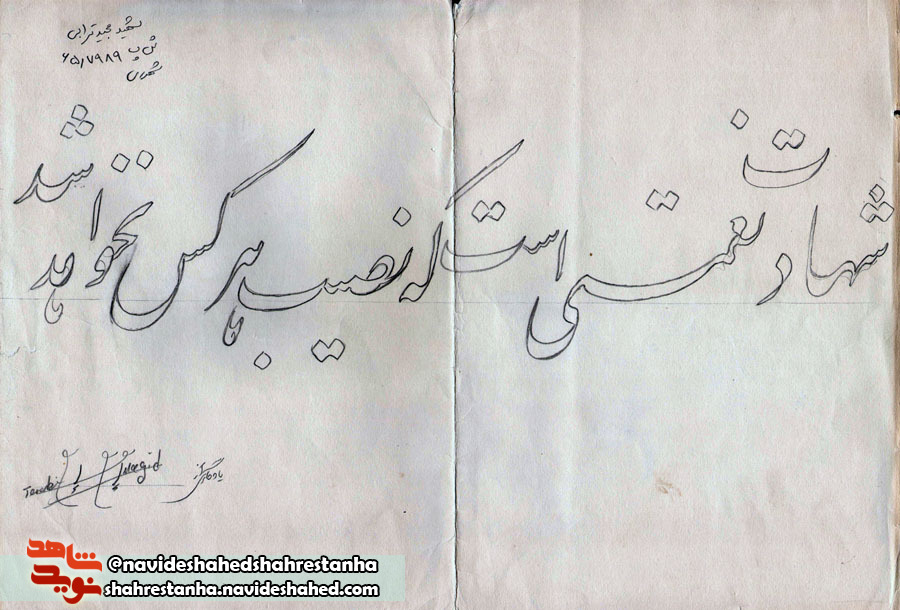 شهید مجید ترابی
ش پ ۶۵/۷۹۸۹
شهادت نعمتی است که نصیب هر کس نخواهد شد
یادگاری از
Majid
شاهد
نوید
@navideshahedshahrestanha
shahrestanha.navideshahed.com